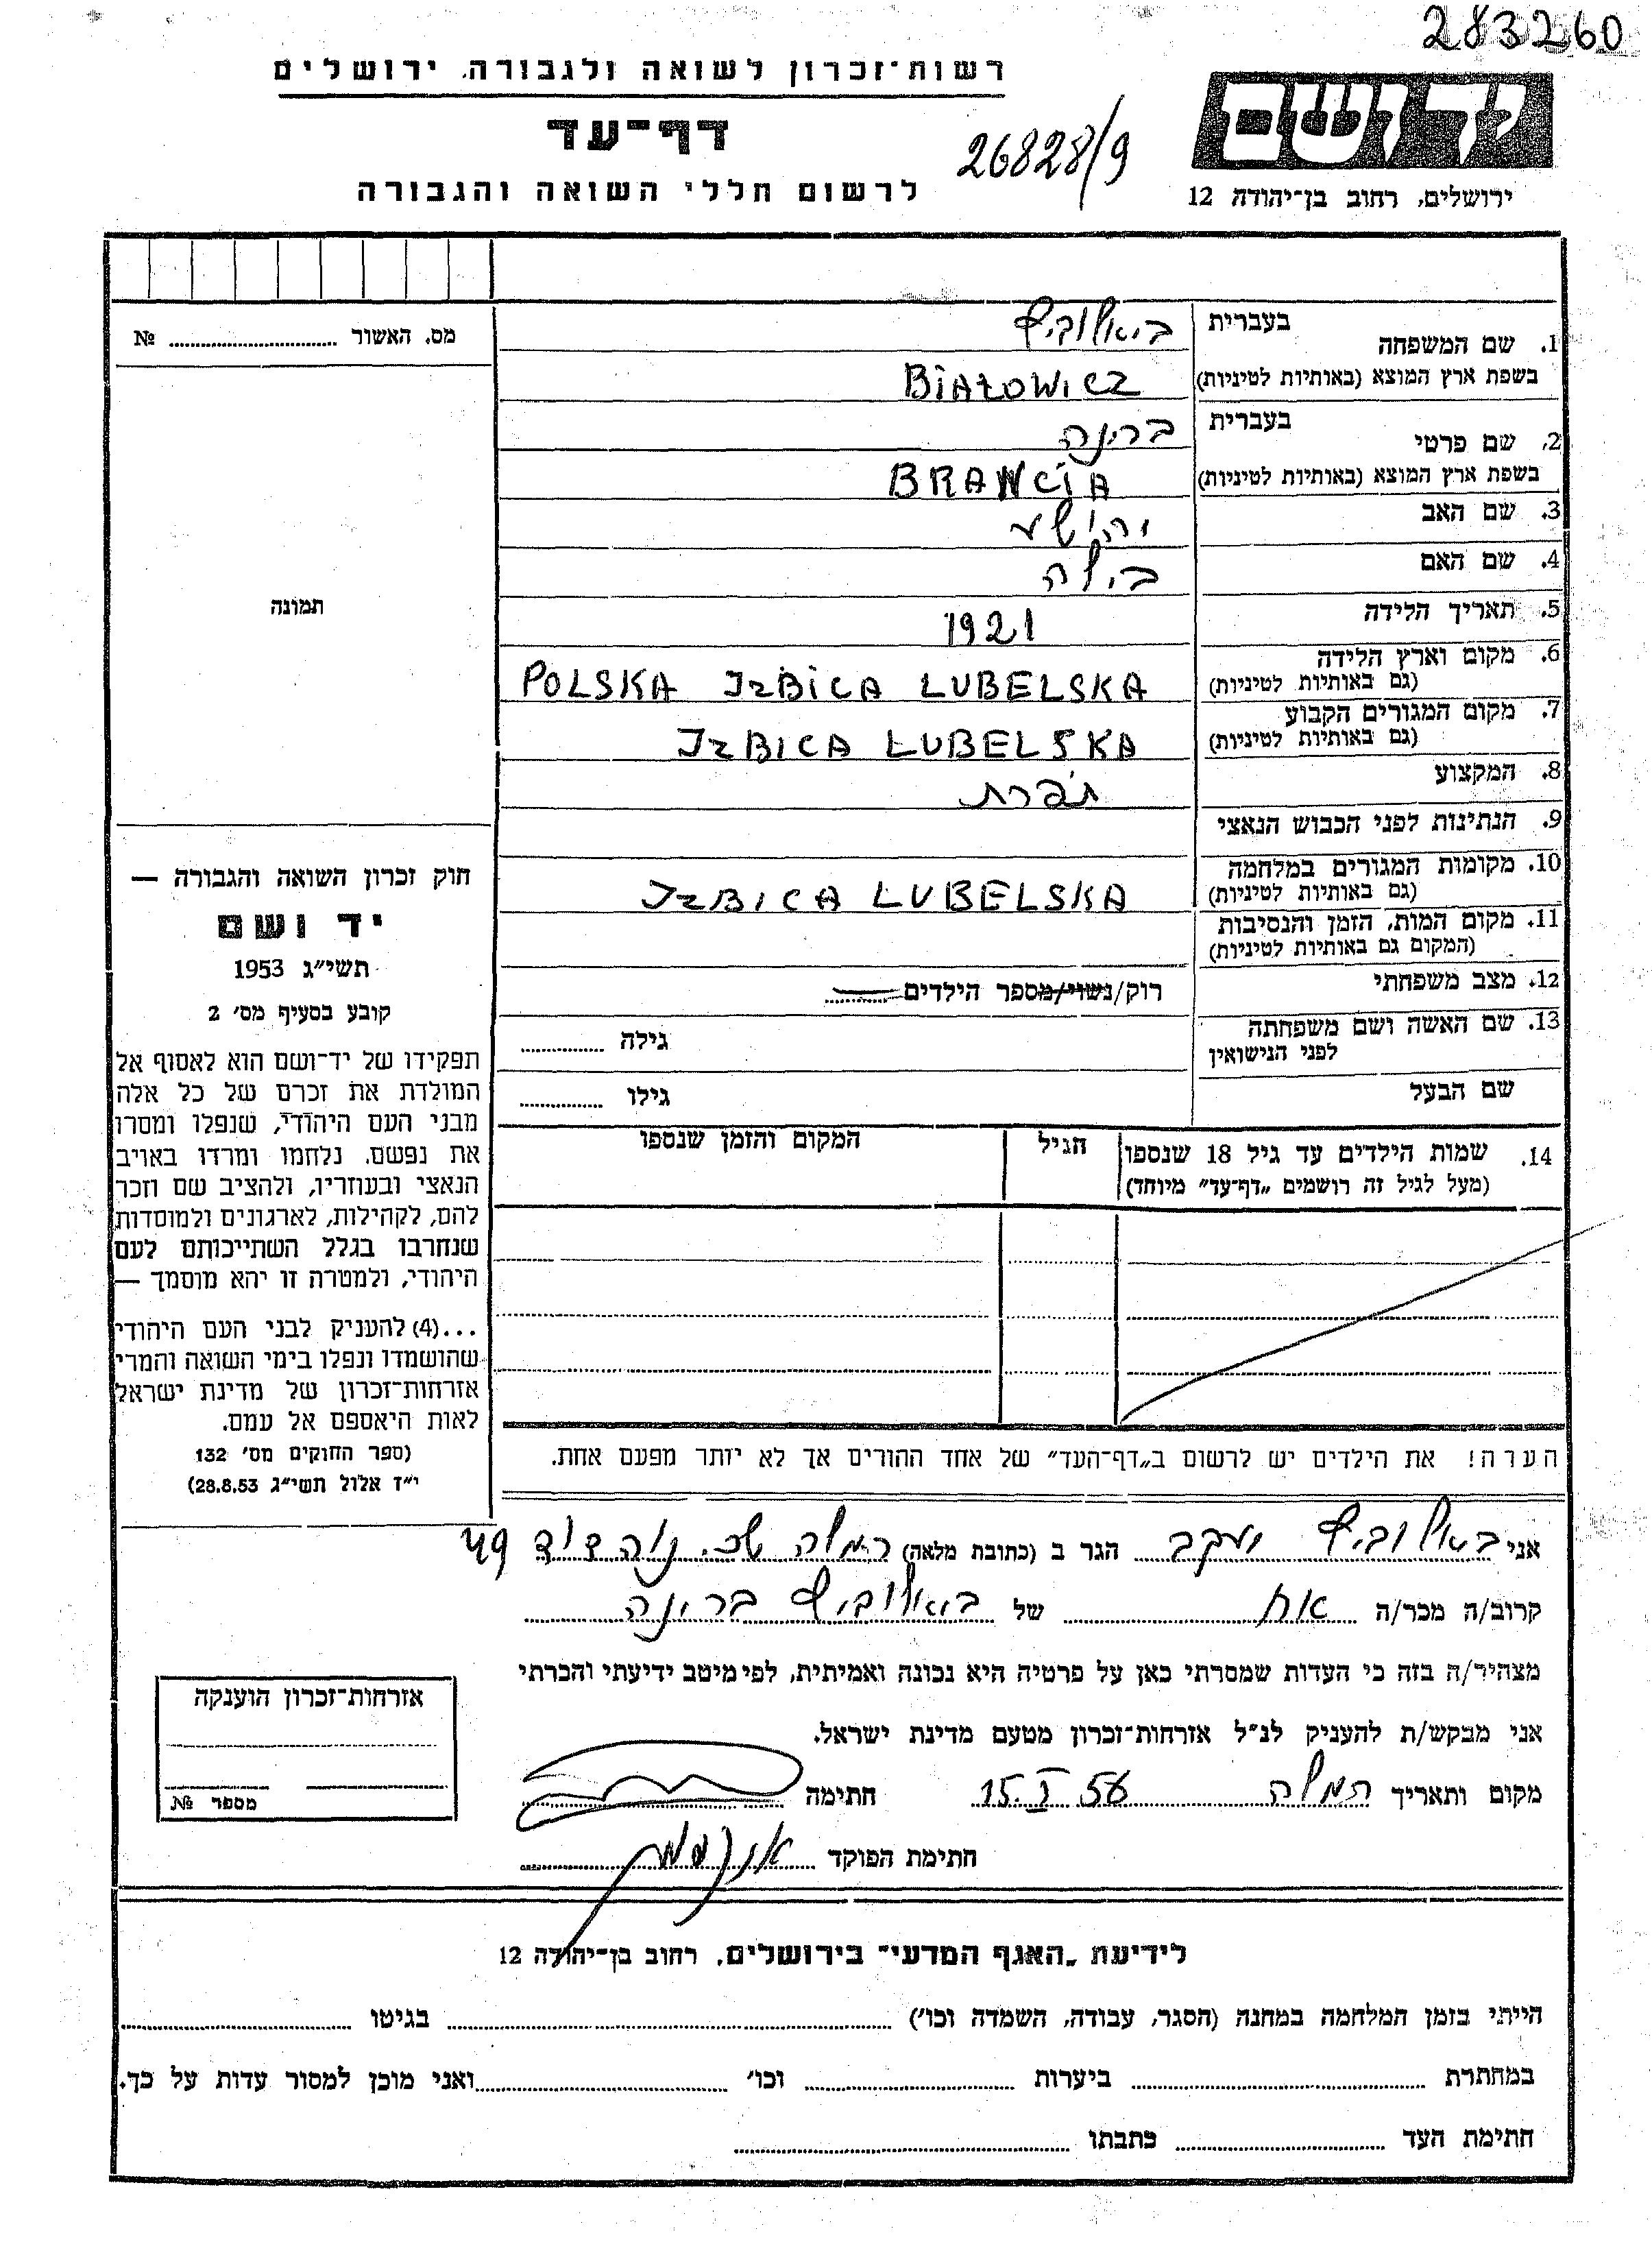 283260
רשות־זכרון לשואה ולגבורה, ירושלים
דף־עד
26828/9
לרשום חללי השואה והגבורה
יד ושם
ירושלים, רחוב בן־יהודה 12
1. שם המשפחה בעברית ביאלוביץ
בשפת ארץ המוצא (באותיות לטיניות) BIAŁOWICZ
2. שם פרטי בעברית ברינה
בשפת ארץ המוצא (באותיות לטיניות) BRANCIA
3. שם האב יהושע
4. שם האם בילה
5. תאריך הלידה 1921
6. מקום וארץ הלידה
(גם באותיות לטיניות) POLSKA IZBICA LUBELSKA
7. מקום המגורים הקבוע
(גם באותיות לטיניות) IZBICA LUBELSKA
8. המקצוע תופרת
9. הנתינות לפני הכבוש הנאצי
10. מקומות המגורים במלחמה
(גם באותיות לטיניות) IZBICA LUBELSKA
11. מקום המות, הזמן והנסיבות
(המקום גם באותיות לטיניות)
12. מצב משפחתי רוק/נשוי/מספר הילדים
13. שם האשה ושם משפחתה
לפני הנישואין גילה
שם הבעל גילו
14. שמות הילדים עד גיל 18 שנספו הגיל המקום והזמן שנספו
(מעל לגיל זה רושמים „דף־עד" מיוחד)
מס. האשור №
תמונה
חוק זכרון השואה והגבורה —
יד ושם
תשי"ג 1953
קובע בסעיף מס' 2
תפקידו של יד־ושם הוא לאסוף אל
המולדת את זכרם של כל אלה
מבני העם היהודי, שנפלו ומסרו
את נפשם, נלחמו ומרדו באויב
הנאצי ובעוזריו, ולהציב שם וזכר
להם, לקהילות, לארגונים ולמוסדות
שנחרבו בגלל השתייכותם לעם
היהודי, ולמטרה זו יהא מוסמך —
...(4) להעניק לבני העם היהודי
שהושמדו ונפלו בימי השואה והמרי
אזרחות־זכרון של מדינת ישראל
לאות היאספם אל עמם.
(ספר החוקים מס' 132
י"ז אלול תשי"ג 28.8.53)
הערה! את הילדים יש לרשום ב„דף־העד" של אחד ההורים אך לא יותר מפעם אחת.
אני ביאלוביץ יעקב הגר ב (כתובת מלאה) רמלה שכ. נוה דוד 49
קרוב/ה מכר/ה אח של ביאלוביץ ברינה
מצהיר/ה בזה כי העדות שמסרתי כאן על פרטיה היא נכונה ואמיתית, לפי מיטב ידיעתי והכרתי
אני מבקש/ת להעניק לנ"ל אזרחות־זכרון מטעם מדינת ישראל.
מקום ותאריך רמלה 15.I 56 חתימה
חתימת הפוקד
אזרחות־זכרון הוענקה
מספר №
לידיעת „האגף המדעי" בירושלים, רחוב בן־יהודה 12
הייתי בזמן המלחמה במחנה (הסגר, עבודה, השמדה וכו') בגיטו
במחתרת ביערות וכו' ואני מוכן למסור עדות על כך.
חתימת העד כתבתו